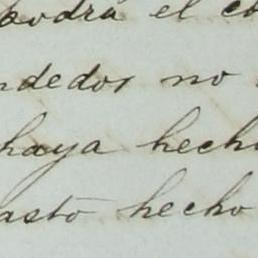 podrá el
ndedor no
haya hech
asto hecho